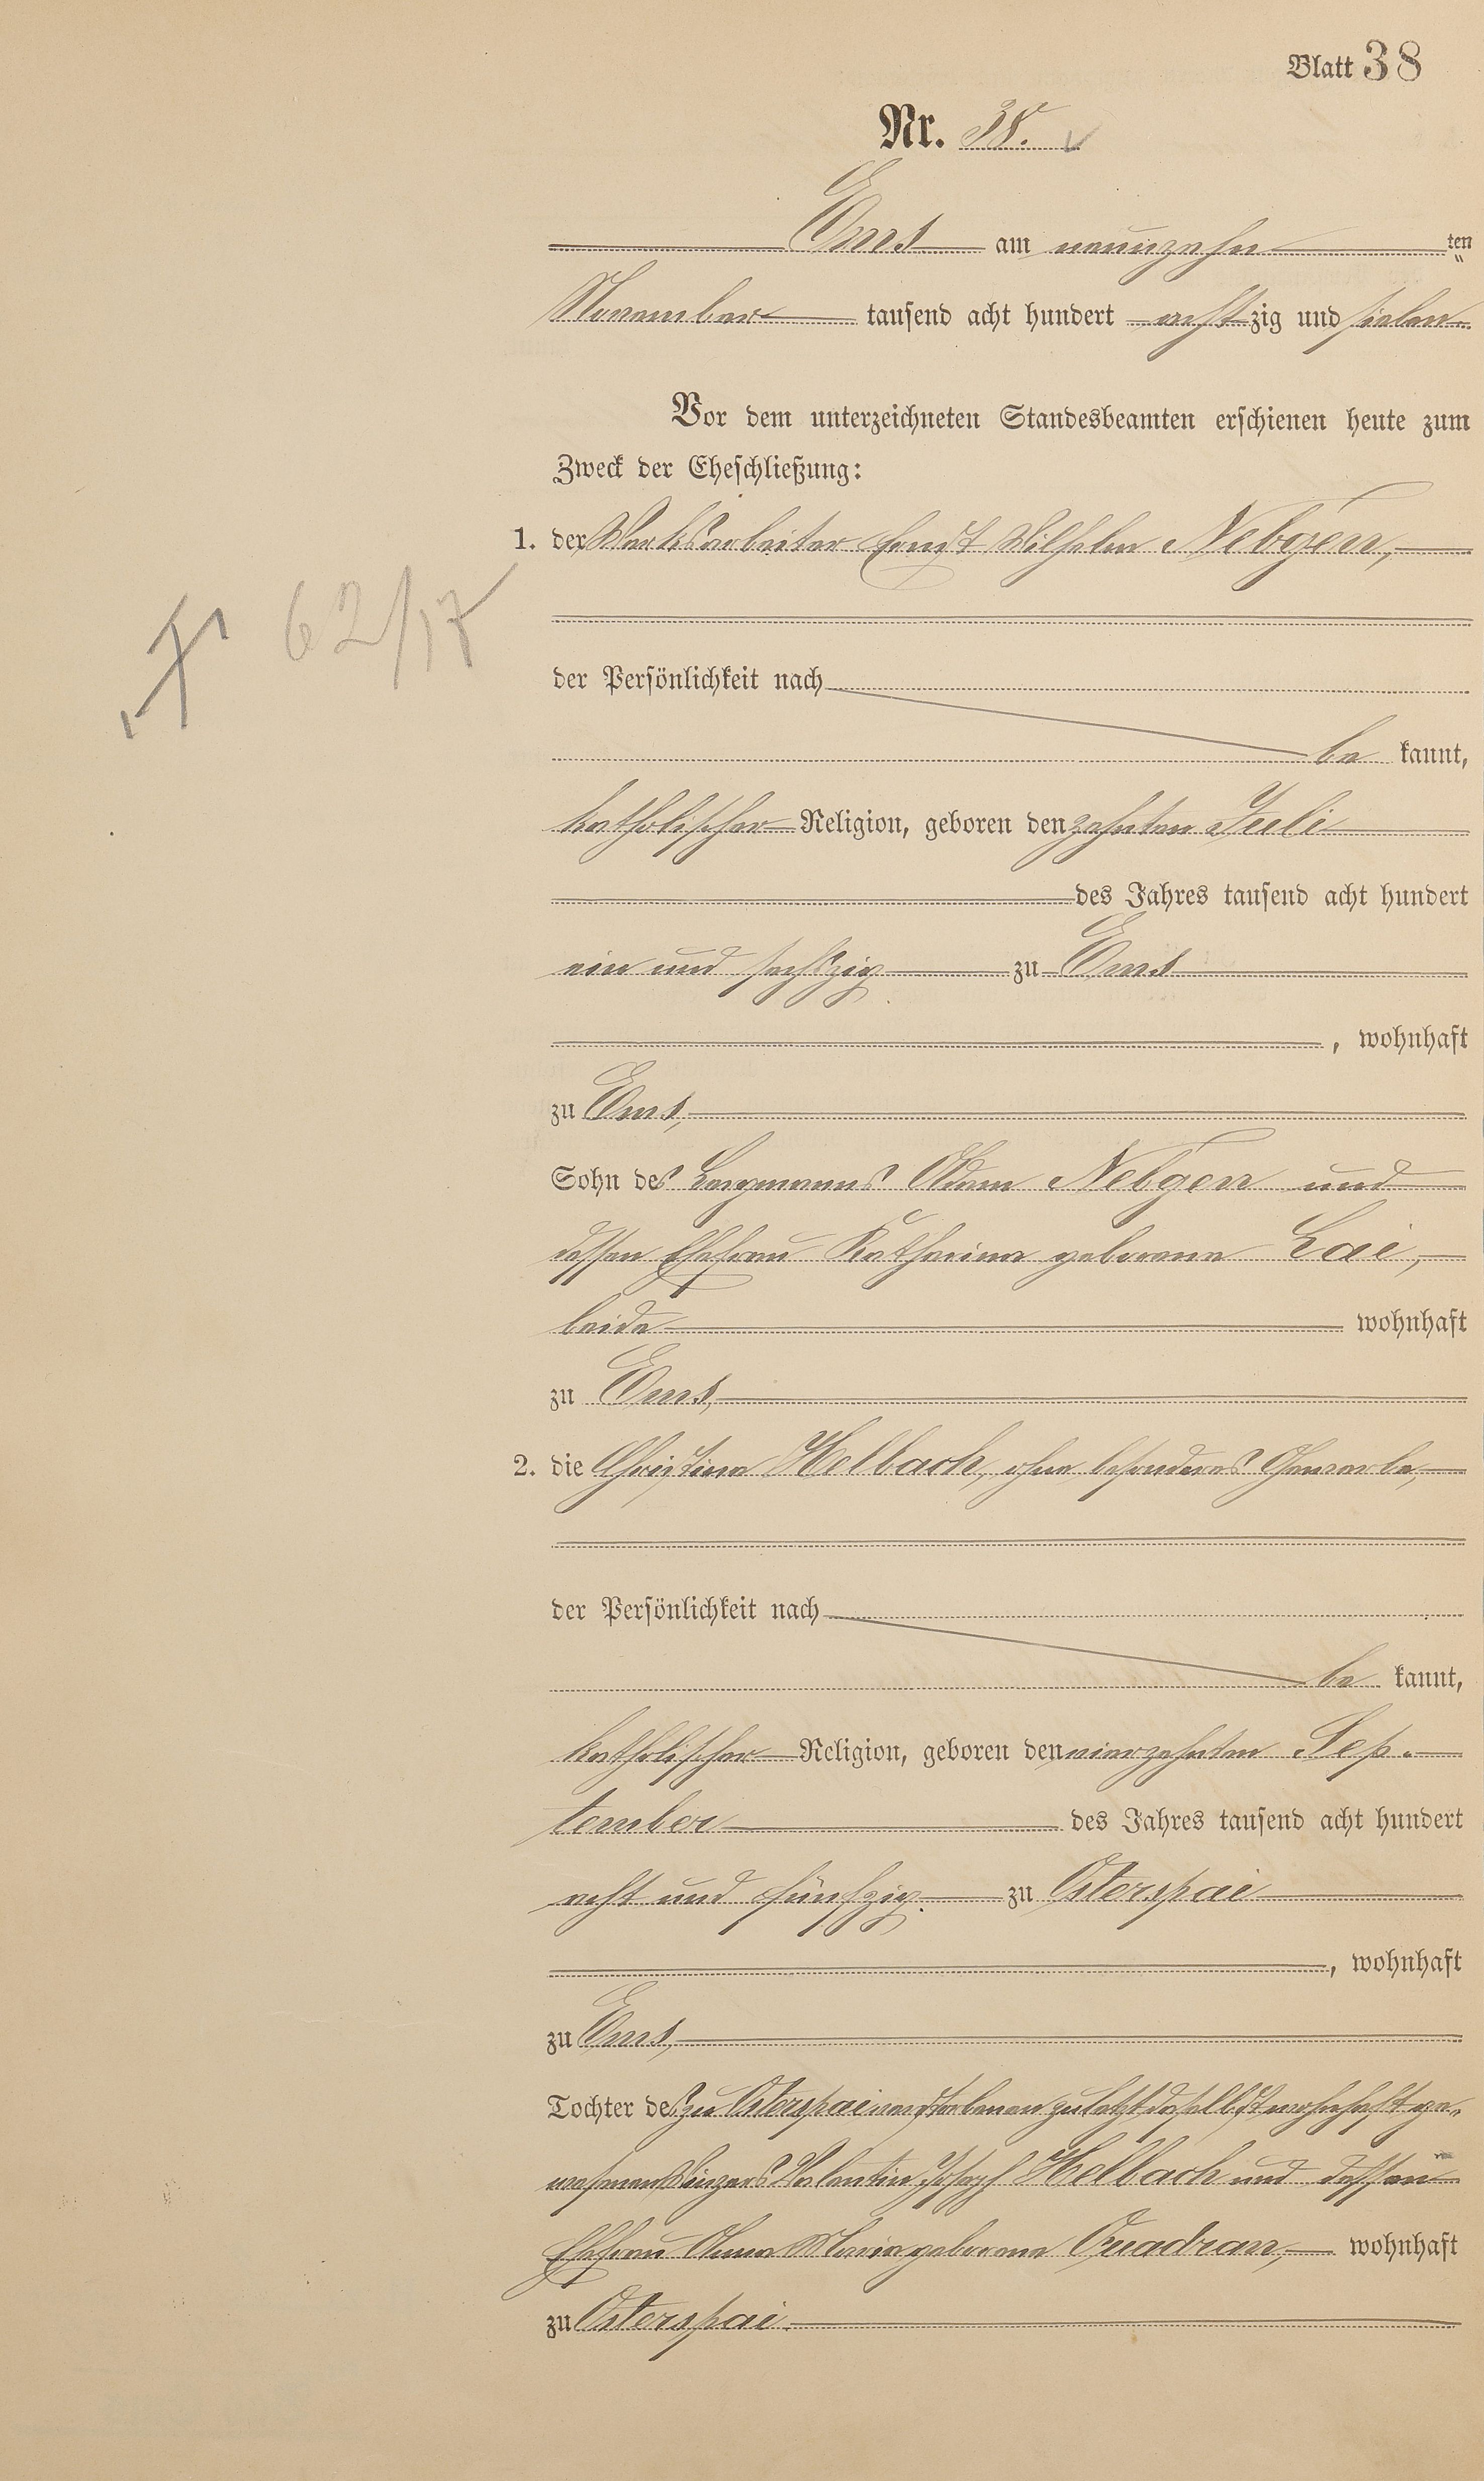 Blatt 38
Nr. 38.
Ems am neunzehn ten
November tausend acht hundert acht zig und sieben
Vor dem unterzeichneten Standesbeamten erschienen heute zum
Zweck der Eheschließung:
1. der Werksarbeiter Ernst Wilhelm Nebgen,
62/17
der Persönlichkeit nach
be kannt,
katholischer Religion, geboren den zehnten Juli
des Jahres tausend acht hundert
ein und sechszig zu Ems
, wohnhaft
zu Ems,
Sohn des Bergmanns Adam Nebgen und
dessen Ehefrau Katharina geborene Lai,
beide wohnhaft
zu Ems,
2. die Christina Helbach, ohne besonderes Gewerbe,
der Persönlichkeit nach
be kannt,
katholischer Religion, geboren den vierzehnten Sep-
tember des Jahres tausend acht hundert
acht und fünfzig. zu Osterspai
, wohnhaft
zu Ems,
Tochter des zu Osterspai verstorbenen zuletzt daselbst wohnhaft ge-
wesenen Winzers Valentin Joseph Helbach und dessen
Ehefrau Anna Maria geborene Quadran, wohnhaft
zu Osterspai.